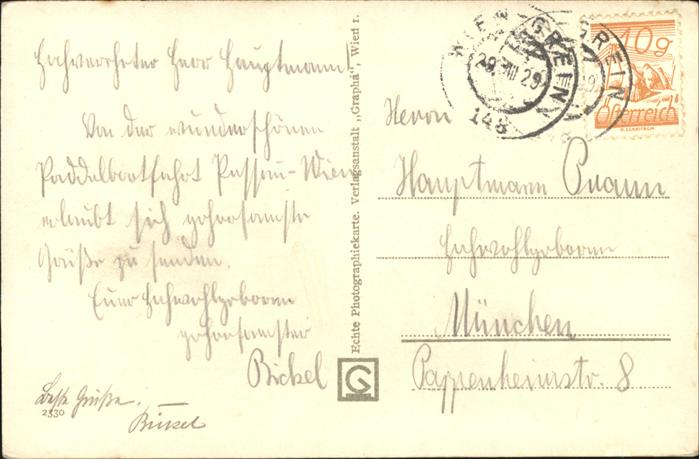 Hochverehrter Herr Hauptmann!
Von der wunderschönen
Paddelbootfahrt Passau-Wien
erlaubt sich gehorsamste
Grüße zu senden.
Euer Hochwohlgeboren
gehorsamster
Bickel
Beste Grüße.
2330
Echte Photographiekarte. Verlagsanstalt „Grapha“, Wien 1.
G
GREIN
GREIN
29. VIII 29
148
10g
Österreich
Herrn
Hauptmann
Hochwohlgeboren
München
Pappenheimstr. 8